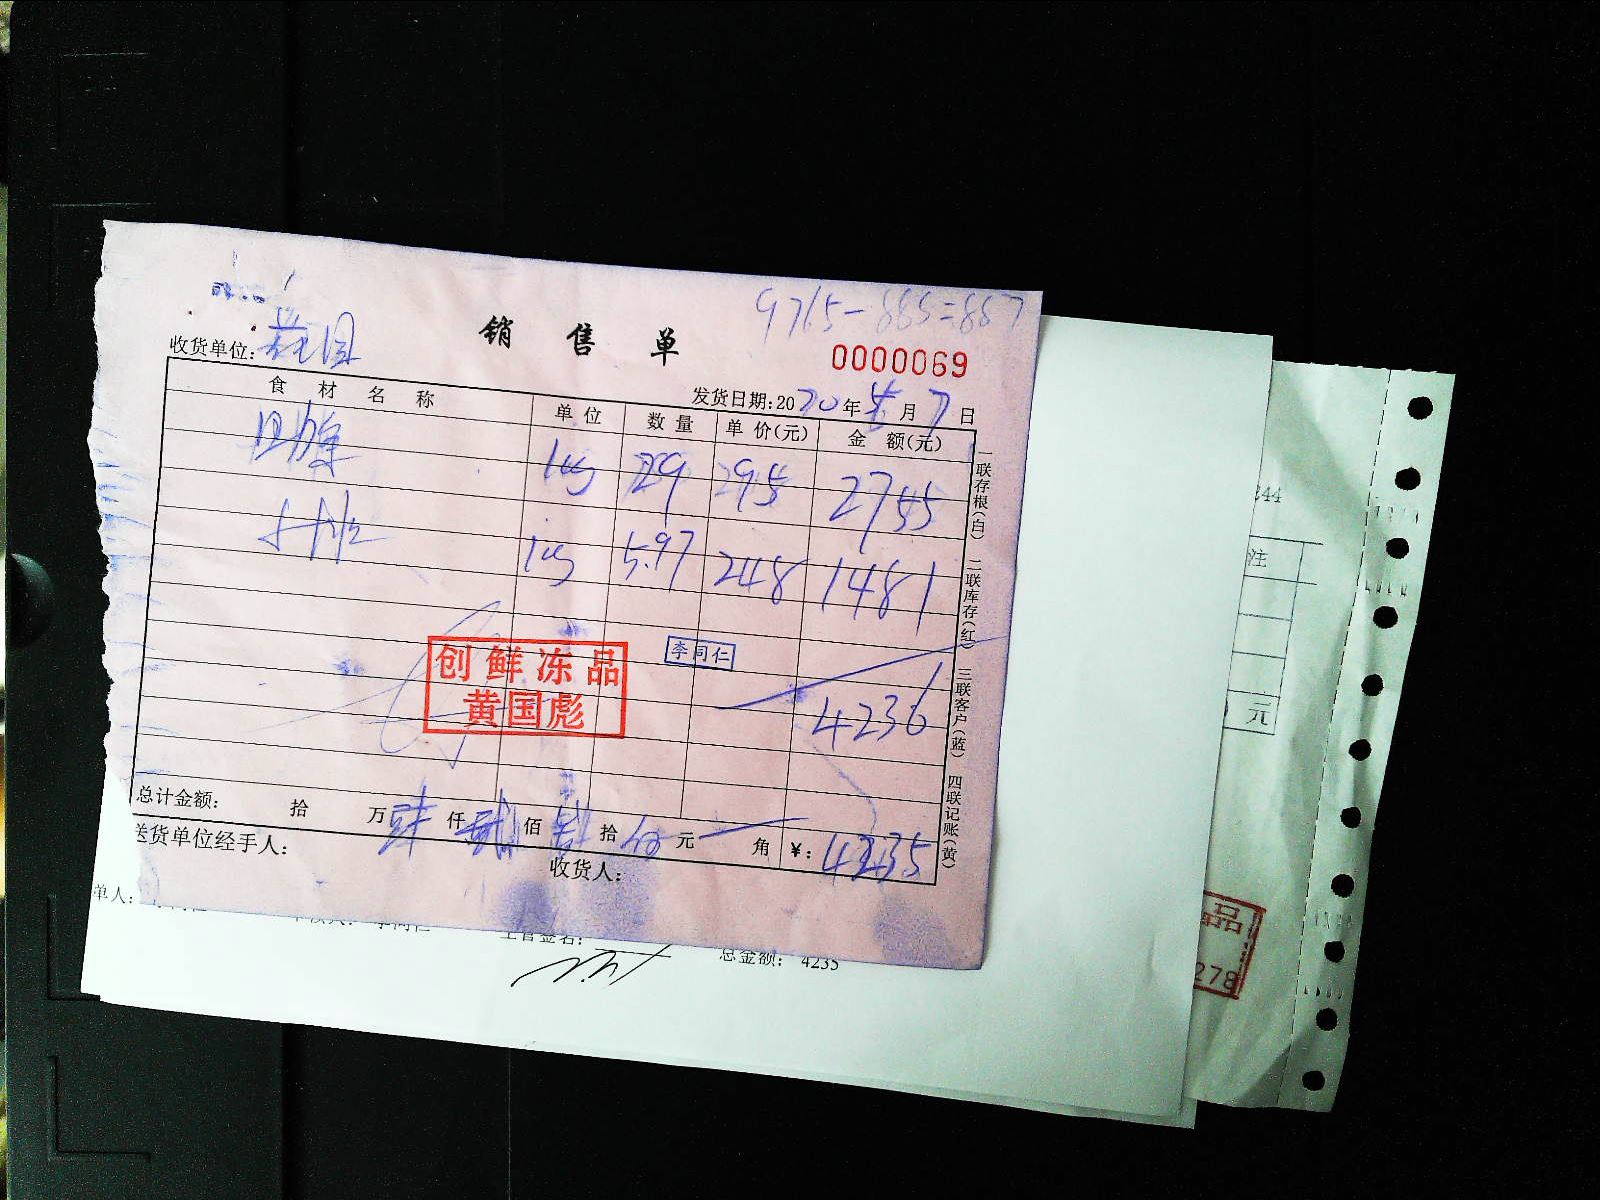 971.5-885=887
销 售 单
0000069
收货单位:
发货日期:2020年 月7日
食材名称 单位 数量 单价(元) 金额(元)
kg 29 29.5 2745
kg 5.97 248 1481
创鲜冻品
黄国彪
李同仁
4236
总计金额: 拾 万 肆 仟 贰 佰 叁 拾 伍 元 角 ¥: 4235
送货单位经手人: 收货人:
一联存根(白) 二联库存(红) 三联客户(蓝) 四联记账(黄)
单人: 李同仁 主管签名: 总金额: 4235
344
注
元
品
278